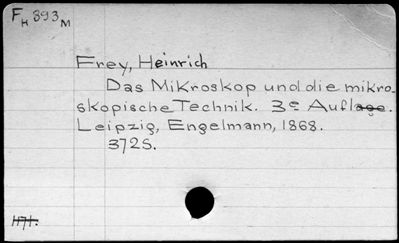 F H 893 M
Frey, Heinrich
Das Mikroskop und die mikro-
skopische Technik. 3e Auflage.
Leipzig, Engelmann, 1868.
372S.
1171.